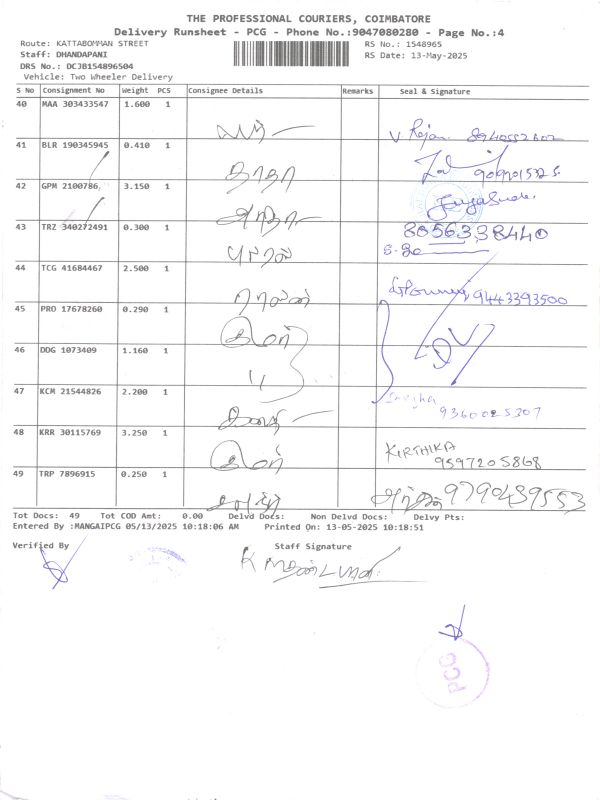 THE PROFESSIONAL COURIERS, COIMBATORE
Delivery Runsheet - PCG - Phone No.:9047080280 - Page No.:4
Route: KATTABOMMAN STREET RS No.: 1548965
Staff: DHANDAPANI RS Date: 13-May-2025
DRS No.: DCJB154896504
Vehicle: Two Wheeler Delivery
S No Consignment No Weight PCS Consignee Details Remarks Seal & Signature
40 MAA 303433547 1.600 1
V. Rajan
41 BLR 190345945 0.410 1
தாதா
42 GPM 2100786, 3.150 1
43 TRZ 340272491 0.300 1
8056338440
44 TCG 41684467 2.500 1
9443393500
45 PRO 17678260 0.290 1
46 DDG 1073409 1.160 1
47 KCM 21544826 2.200 1
9360025307
48 KRR 30115769 3.250 1
KIRTHIKA
9597205868
49 TRP 7896915 0.250 1
9790439553
Tot Docs: 49 Tot COD Amt: 0.00 Delvd Docs: Non Delvd Docs: Delvy Pts:
Entered By :MANGAIPCG 05/13/2025 10:18:06 AM Printed On: 13-05-2025 10:18:51
Verified By Staff Signature
PCG